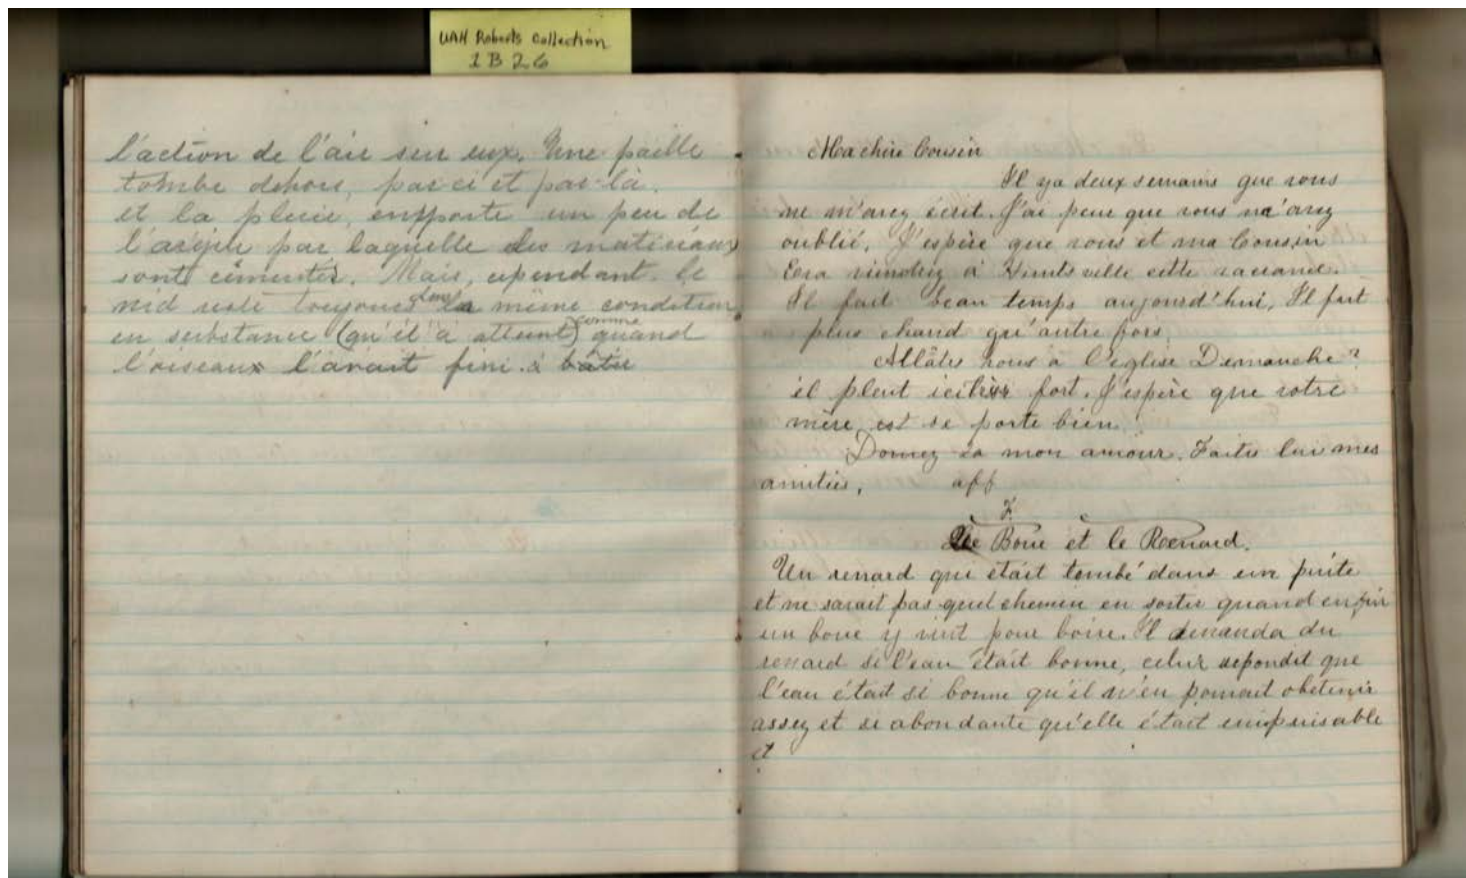 UAH Roberts Collection
1B26
l'action de l'air sur eux. Une paille
tombe dehors, par-ci et par-là.
et la pluie, emporte un peu de
l'argile par laquelle les matériaux
sont cimentés. Mais, cependant le
nid reste toujours dans la même condition
en substance (qu'il a atteint) comme quand
l'oiseaux l'avait fini à bâtir
Ma chère Cousin
Il y a deux semains que vous
ne m'avez écrit. J'ai peur que vous m'avez
oublié. J'espère que vous et ma Cousin
viendrez à Huntsville cette vacance.
Il fait beau temps aujourd'hui, Il fait
plus chaud qu'autre fois
Allâtes vous à l'eglise Dimanche?
il pleut ici fort. J'espère que votre
mère est se porte bien
Donnez sa mon amour. Faites lui mes
amitiés, aff
Z.
Le Bouc et le Renard.
Un renard qui était tombé dans un puite
et ne savait pas quel chemin en sortir quand enfin
un bouc y vint pour boire. Il demanda du
renard si l'eau était bonne, celui repondit que
l'eau était si bonne qu'il n'en pouvait obetenir
assez et si abondante qu'elle était inépuisable
et